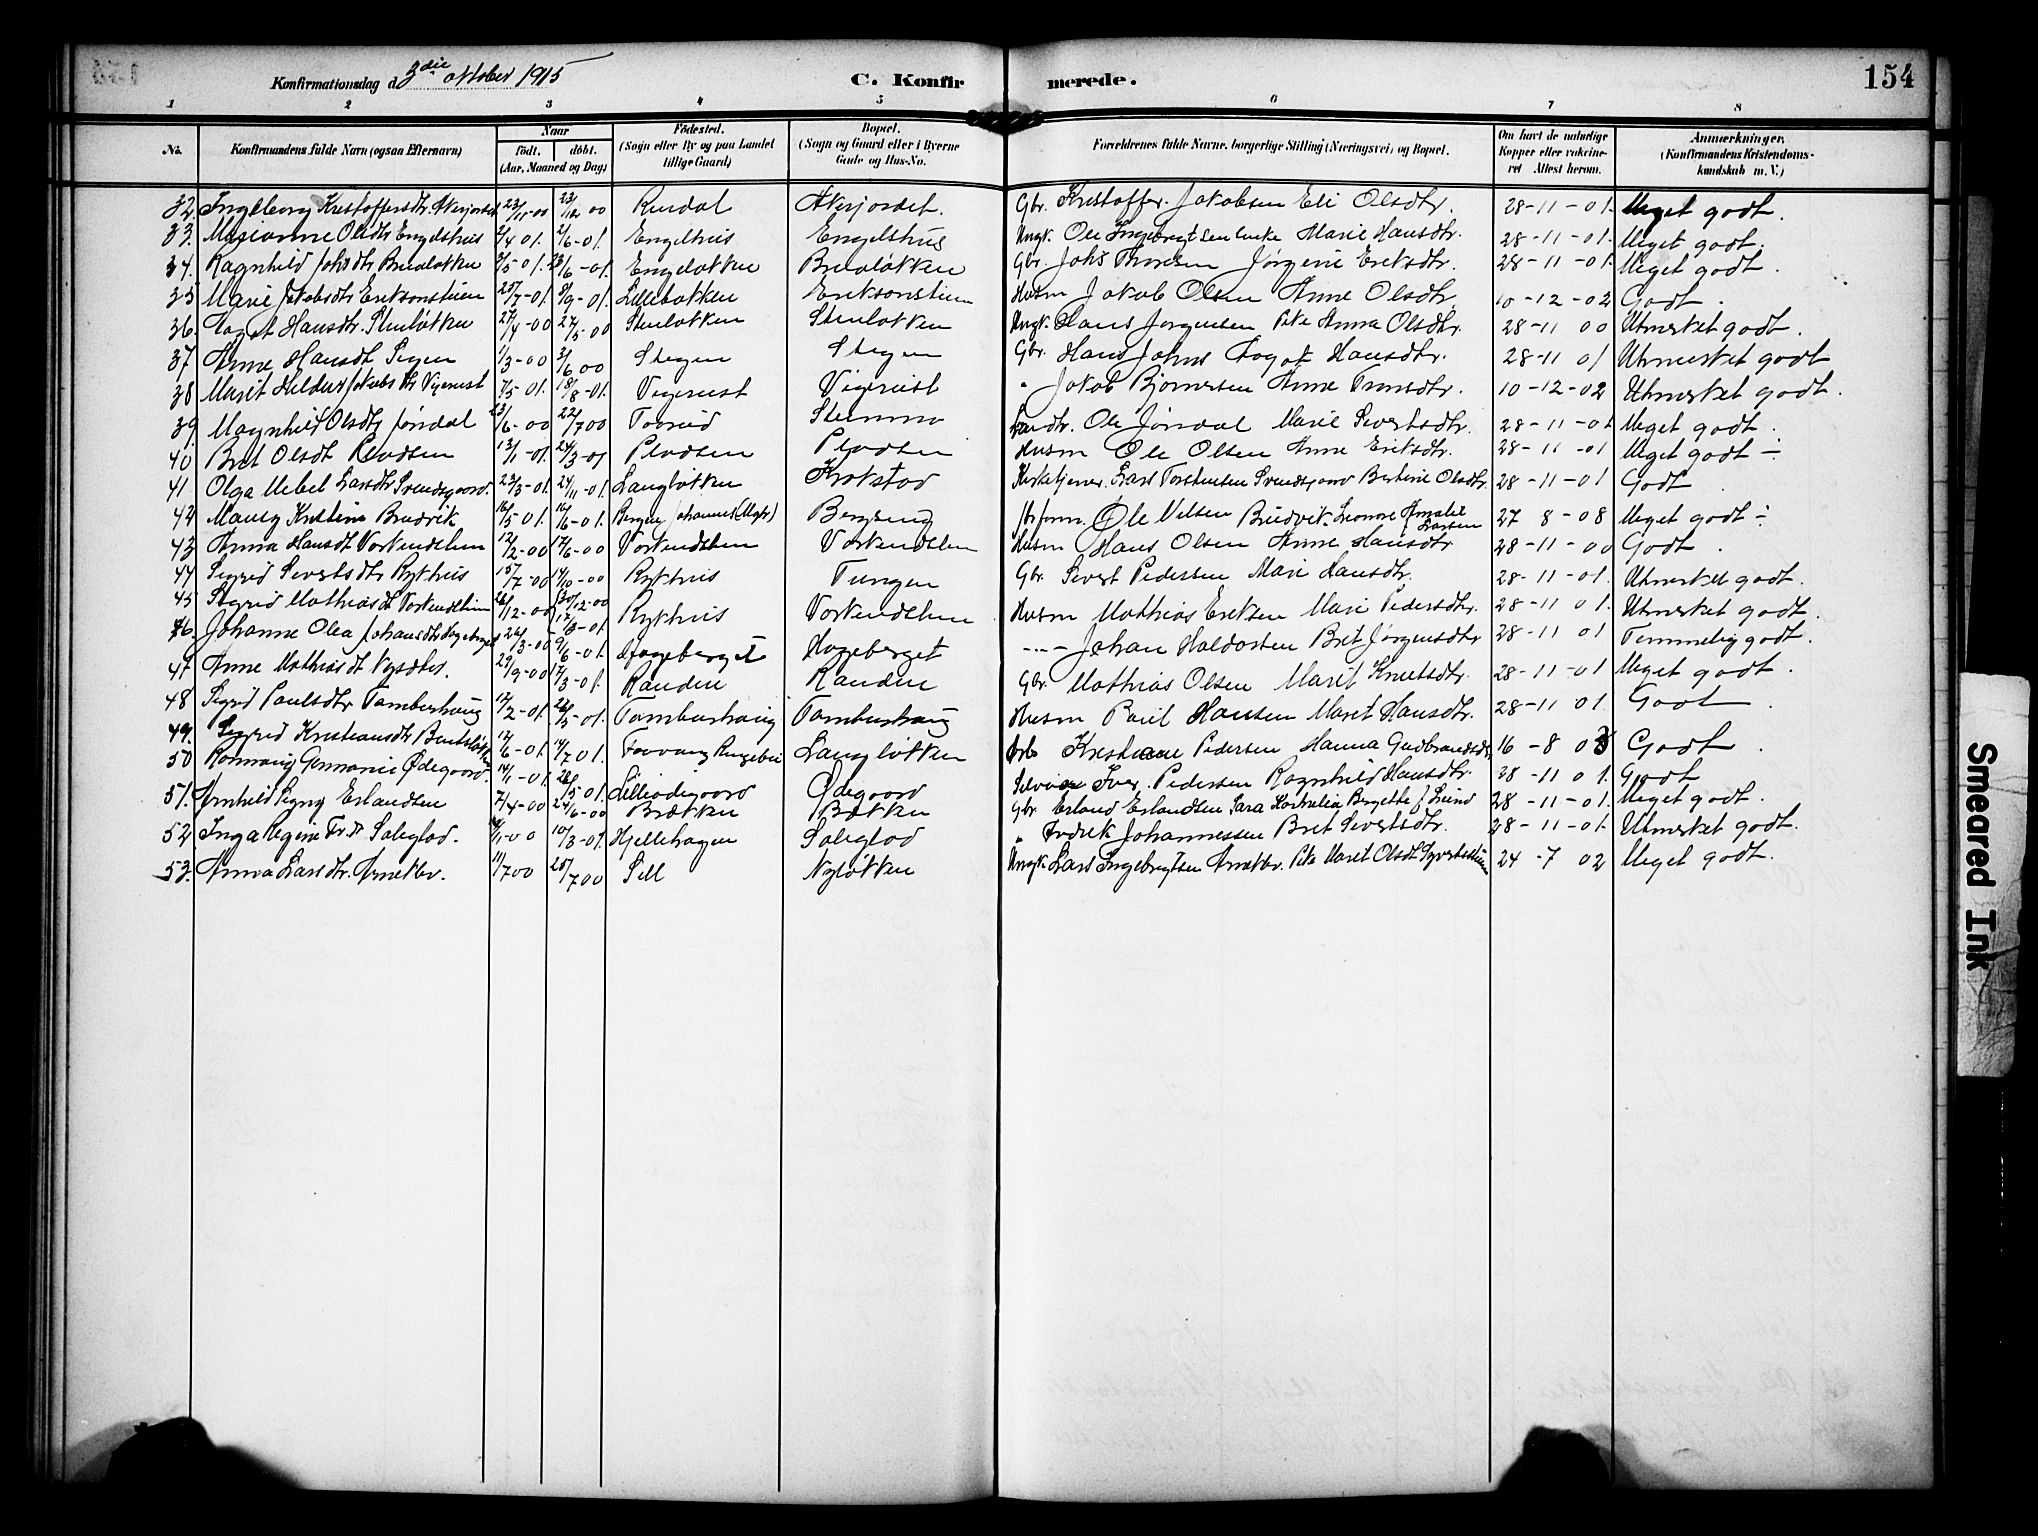 Konfirmationsdag d. 3die oktober 1915 C. Konfir merede. 154
1 2 3 4 5 6 7 8
No. Konfirmandens fulde Navn (ogsaa Efternavn) Naar födt. döbt. (Aar, Maaned og Dag) Födested. (Sogn eller By og paa Landet tillige Gaard) Bopæl. (Sogn og Gaard eller i Byerne Gade og Hus-No. Forældrenes fulde Navne, borgerlige Stilling (Næringsvei) og Bopæl. Om havt de naturlige Kopper eller vakcineret. Attest herom. Anmærkninger. (Konfirmandens Kristendomskundskab m. V.)
32. Ingeborg Kristoffersdtr. Akerjordet 23/11-00 23/12 00 Rusdal Akerjordet. Gbr. Kristoffer Jakobsen Eli Olsdtr. 28-11-01. Meget godt.
33. Marianne Olsdtr Engelshus 2/4 01. 2/6-01. Engelhus Engelshus Ungk. Ole Ingebrigtsen Marie Hansdtr. 28-11-01. Meget godt.
34. Ragnhild Johsdtr Bredeløkken 3/5-01. 23/6-01. Engeløkken Bredeløkken Gbr. Johs Thoresen Jørgine Eriksdtr. 28-11-01. Meget godt.
35 Marie Jakobsdtr Eriksonstuen 25/7-01. 8/9-01. Lillebakken Eriksonstuen Husm Jakob Olsen Anne Olsdtr. 10-12-02 Godt.
36 Hansdtr. Stenløkken 27/4-00 27/5-00 Stenløkken Stenløkken Ungk. Hans Jørgensen Pike Anna Olsdtr. 28-11 00 Utmerket godt.
37 Anne Hansdt Stegen 1/3-00 3/6 00 Stegen Stegen Gbr. Hans Johns Hansdtr. 28-11 01 Utmerket godt
38 Marit Jakobsdtr Vigerust 7/5 01. 18/8-01. Vigerust Vigerust " Jakob Bjørnersen Anne Tronsdtr. 10-12-02 Utmerket godt.
39 Magnhild Olsdtr Jøndal 23/6-00 22/7 00 Tofrud Stemmo Landtr. Ole Jøndal Marie Sivertsdtr. 28-11-01 Meget godt.
40 Brit Olsdt Pladsen 13/1-01. 24/3-01 Pladsen Pladsen Husm Ole Olsen Anne Eriksdtr. 28-11-01 Meget godt ÷
41 Olga Mebel Larsdtr Svendsgaard. 23/3-01. 24/11-01. Langløkken Krokstad Kirketjener. Lars Torstensen Svendsgaard Bertine Olsdtr. 28-11-01 Godt
42 Mary Kristine Bredvik 16/5 01. 16/6-01. Bergen Johannes (Mgh) Bergseng Ole Nelsen Bredvik Leonore Amalie Larsen 27 8-08 Meget godt ÷
43 Anna Hansdt Vorkendslien 12/2-00 17/6-00 Vorkendslien Vorkendslien Husm Hans Olsen Anne Hansdtr 28-11-00 Godt.
44 Sigrid Sivertsdtr Rykhus 15/7-00 14/10-00 Rykhus Tungen Gbr. Sivert Pedersen Mari Hansdtr. 28-11-01. Utmerket godt.
45 Sigrid Mathiasdt Vorkendslien 26/12-00 Rykhus Vorkendslien Husm Mathias Eriksen Mari Pedersdtr. 28-11 01. Utmerket godt.
46. Johanne Olea Johansdtr Hageberget 26/3-00 9/6-01. Hageberget Hageberget --- Johan Haldorsen Brit Jørgensdtr 28-11 01 Temmelig godt.
47 Anne Mathiasdt 29/9-00 17/3-01. Randen Randen Gbr. Mathias Olsen Marit Knutsdtr. 28-11-01 Meget godt.
48 Sigrid Paulsdtr Tamburhaug 12/2-01. 26/5-01. Tamburhaug Tamburhaug Husm Paul Hansen Marit Hansdtr. 28-11 01. Godt.
49. Sigrid Kristiansdtr 12/6-01. 14/7 01. Faavang Ringebu Langløkken Arb Kristian Pedersen Hanna Gudbrandsdtr 16-8 03 Godt.
50 Ronnaug Germanie Ødegaard. 14/1-01. 26/5 01. Lilleødegaard Ødegaard Iver Pedersen Ragnhild Hansdtr. 28-11 01. Godt
51. Arnhild Signy Erlandsen 7/4-00 24/6-00 Brekken Brekken Gbr Erland Erlandsen Sara Kornelia Birgitte f. Lund 28-11-01. Meget godt.
52 Inga Regine Fr.dt Solglad. 10/3-01. Hjellehagen Solglad " Fredrik Johannessen Brit Sivertsdtr. 28-11-01. Utmerket godt.
53. Anna Larsdtr. Arnekler. 11/7 00 25/7 00 Sell Nyløkken Ungk. Lars Ingebrigtsen Pike Marit Olsdt 24-7 02 Meget godt.
Smeared Ink